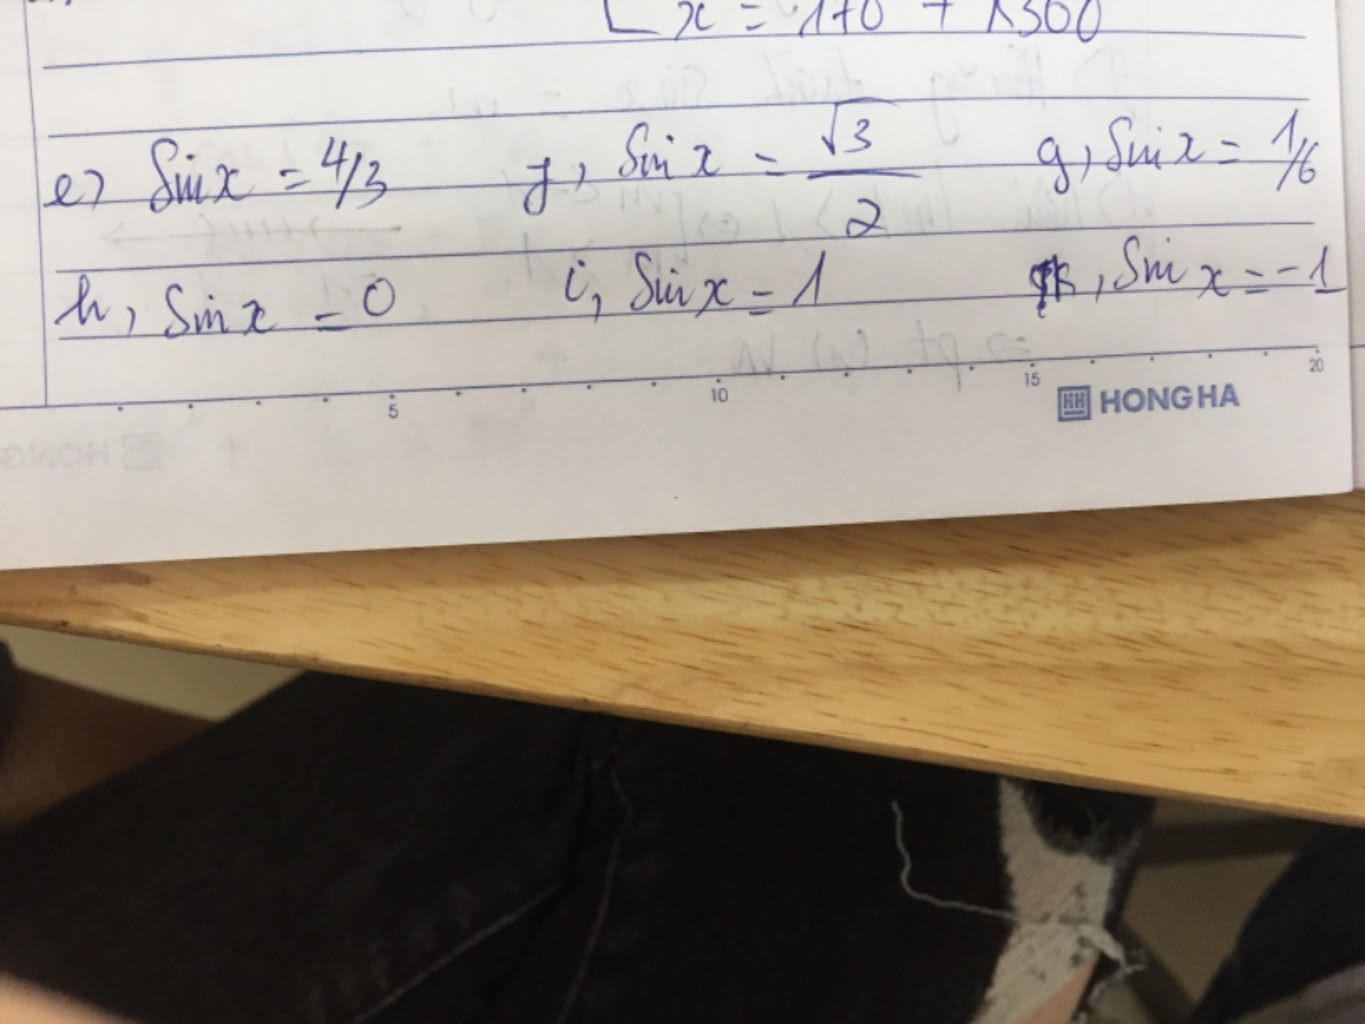 x = 170 + k360
e) Sin x = 4/3 f, Sin x = √3/2 g, Sin x = 1/6
h, Sin x = 0 i, Sin x = 1 k, Sin x = -1
5 10 15 20
HH HONG HA